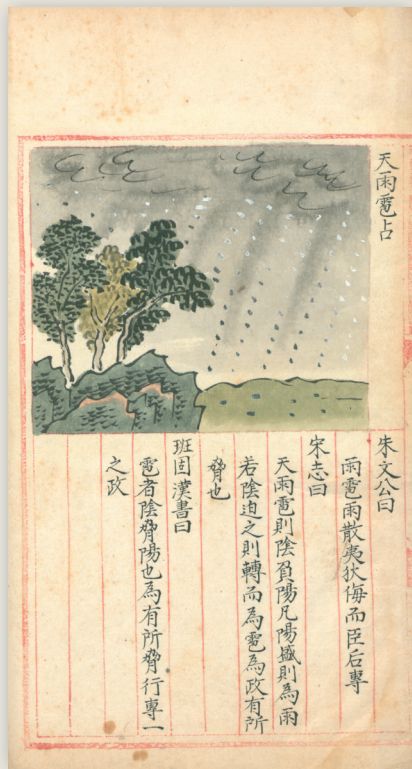 天雨雹占
朱文公曰
雨雹雨散夷狄侮而臣后專
宋志曰
天雨雹則陰負陽凡陽盛則為雨
若陰迫之則轉而為雹為政有所
脅也
班固漢書曰
雹者陰脅陽也為有所脅行專一
之政